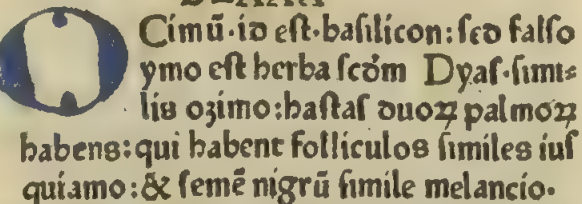 OCimū·id eſt·baſilicon: ſcd falſo
ymo eſt herba ſcdm Dyaſ·ſimi⸗
lis ozimo: haſtaſ duoꝝ palmoꝝ
habens: qui habent folliculos ſimiles iuſ
quiamo: & ſemē nigrū ſimile melancio·